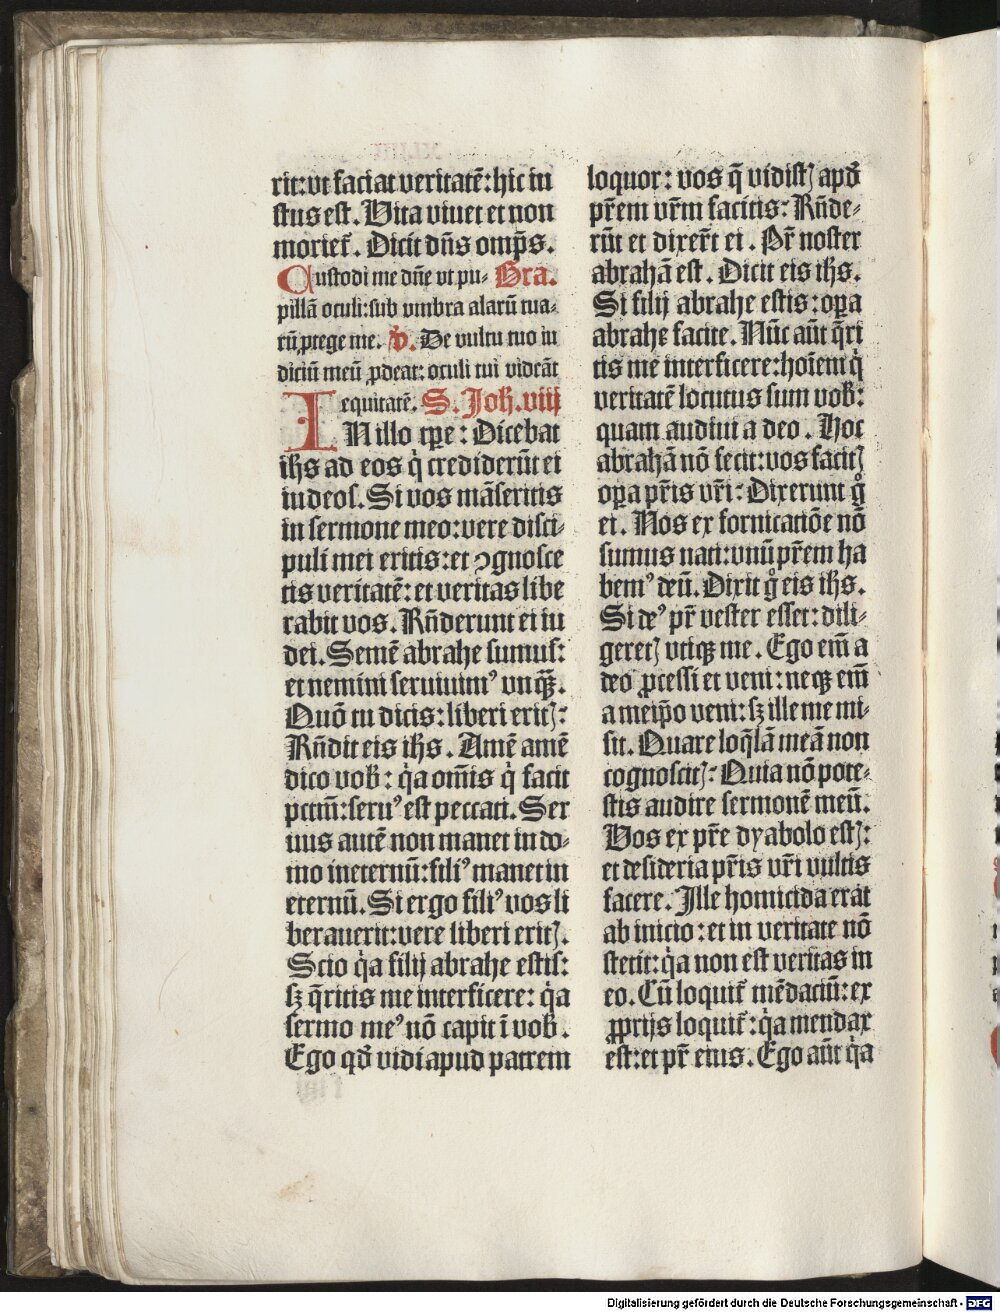 rit: vt faciat veritatē: hic in
stus est. Vita viuet et non
morieť. Dicit dn̄s omp̄s.
Custodi me dn̄e vt pu- Gra.
pillā oculi: sub vmbra alarū tua-
rū ꝓtege me. V̉. De vultu tuo iu
diciū meū ꝓdeat: oculi tui videāt
equitatē. S. Joh̄. viij
IN illo tp̄e: Dicebat
ih̄s ad eos q̇ crediderūt ei
iudeos. Si vos māseritis
in sermone meo: vere disci-
puli mei eritis: et ꝯgnosce
tis veritatē: et veritas libe
rabit vos. Rn̄derunt ei iu
dei. Semē abrahe sumus:
et nemini seruiuimꝰ vnqꝫ̄.
Quō tu dicis: liberi eritꝭ:
Rn̄dit eis ih̄s. Amē amē
dico vob̄: q̇a om̄is q̇ facit
pctm̄: seruꝰ est peccati. Ser
uus autē non manet in do-
mo ineternū: filiꝰ manet in
eternū. Si ergo filiꝰ vos li
berauerit: vere liberi eritꝭ.
Scio q̇a filij abrahe estis:
sꝫ q̄ritis me interficere: q̇a
sermo meꝰ nō capit ī vob̄.
Ego qd̄ vidi apud patrem
loquor: vos q̄ vidistꝭ apd̄
pr̄em vr̄m facitis: Rn̄de-
rūt et dixer̄t ei. Pr̄ noster
abrahā est. Dicit eis ih̄s.
Si filij abrahe estis: oꝑa
abrahe facite. Nūc aūt q̄ri
tis me interficere: hoīem q̇
veritatē locutus sum vob̄:
quam audiui a deo. Hoc
abrahā nō fecit: vos facitꝭ
oꝑa pr̄is vr̄i: Dixerunt gͦ
ei. Nos ex fornicatiōe nō
sumus nati: vnū pr̄em ha
bemꝰ deū. Dixit gͦ eis ih̄s.
Si deꝰ pr̄ vester esset: dili-
geretꝭ vtiqꝫ me. Ego em̄ a
deo ꝓcessi et veni: neqꝫ em̄
a meip̄o veni: sꝫ ille me mi-
sit. Quare loq̄lā meā non
cognoscitꝭ: Quia nō pote-
stis audire sermonē meū.
Vos ex pr̄e dyabolo estꝭ:
et desideria pr̄is vr̄i vultis
facere. Ille homicida erat
ab inicio: et in veritate nō
stetit: q̇a non est veritas in
eo. Cū loquiť mēdaciū: ex
ꝓprijs loquiť: q̇a mendax
est: et pr̄ eius. Ego aūt q̇a
Digitalisierung gefördert durch die Deutsche Forschungsgemeinschaft - DFG